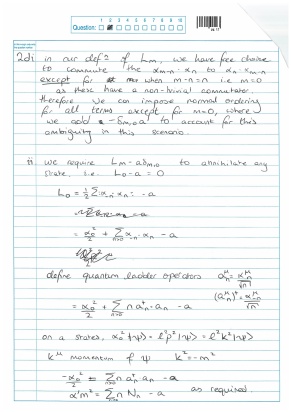 1 2 3 4 5 6 7 8 9 10
Question:
2di in our defⁿ of Lₘ, we have free choice
to commute the αₘ₋ₙ · αₙ to αₙ · αₘ₋ₙ
except for when m-n=n i.e. m=0
as these have a non-trivial commutator
therefore we can impose normal ordering
for all terms except for m=0, where
we add -δₘ,₀a to account for this
ambiguity in this scenario.
ii we require Lₘ-aδₘ,₀ to annihilate any
state, i.e. L₀-a = 0
L₀ = ½ Σ :αₙ · αₙ: - a
= α₀²/2 + Σₙ>₀ α₋ₙ · αₙ - a
define quantum ladder operators aₙ^μ = αₙ^μ/√n
(aₙ^μ)† = α₋ₙ^μ/√n
= α₀²/2 + Σₙ>₀ n aₙ† · aₙ - a
on a states, α₀²|ψ> = ℓ²p²|ψ> = ℓ²k²|ψ>
k^μ momentum of ψ k² = -m²
Σₙ>₀ n aₙ† aₙ - a
α'm² = Σₙ>₀ n Nₙ - a as required.